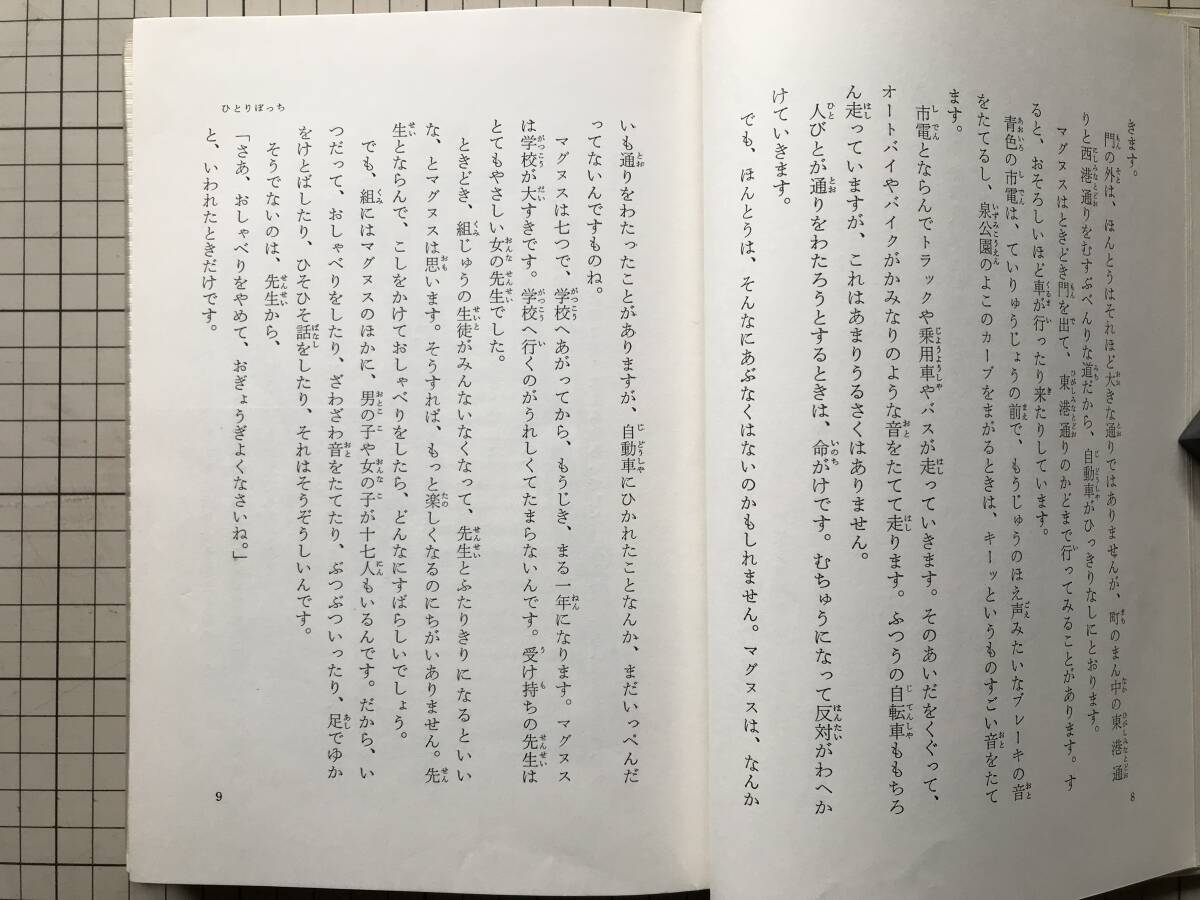 きます。
門の外は、ほんとうはそれほど大きな通りではありませんが、町のまん中の東港通
りと西港通りをむすぶべんりな道だから、自動車がひっきりなしにとおります。
マグヌスはときどき門を出て、東港通りのかどまで行ってみることがあります。す
ると、おそろしいほど車が行ったり来たりしています。
青色の市電は、ていりゅうじょうの前で、もうじゅうのほえ声みたいなブレーキの音
をたてるし、泉公園のよこのカーブをまがるときは、キーッというものすごい音をたて
ます。
市電とならんでトラックや乗用車やバスが走っていきます。そのあいだをくぐって、
オートバイやバイクがかみなりのような音をたてて走ります。ふつうの自転車ももちろ
ん走っていますが、これはあまりうるさくはありません。
人びとが通りをわたろうとするときは、命がけです。むちゅうになって反対がわへか
けていきます。
でも、ほんとうは、そんなにあぶなくはないのかもしれません。マグヌスは、なんか
8
いも通りをわたったことがありますが、自動車にひかれたことなんか、まだいっぺんだ
ってないんですものね。
マグヌスは七つで、学校へあがってから、もうじき、まる一年になります。マグヌス
は学校が大すきです。学校へ行くのがうれしくてたまらないんです。受け持ちの先生は
とてもやさしい女の先生でした。
ときどき、組じゅうの生徒がみんないなくなって、先生とふたりきりになるといい
な、とマグヌスは思います。そうすれば、もっと楽しくなるのにちがいありません。先
生とならんで、こしをかけておしゃべりをしたら、どんなにすばらしいでしょう。
でも、組にはマグヌスのほかに、男の子や女の子が十七人もいるんです。だから、い
つだって、おしゃべりをしたり、ざわざわ音をたてたり、ぶつぶついったり、足でゆか
をけとばしたり、ひそひそ話をしたり、それはそうぞうしいんです。
そうでないのは、先生から、
「さあ、おしゃべりをやめて、おぎょうぎよくなさいね。」
と、いわれたときだけです。
ひとりぼっち
9